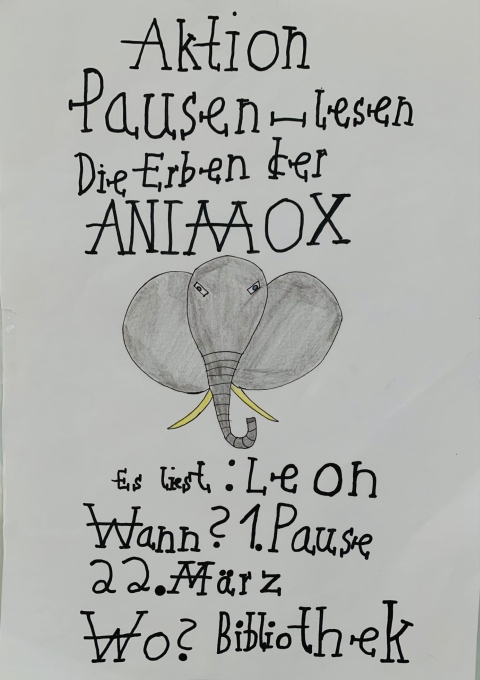 Aktion
Pausen-Lesen
Die Erben der
ANIMOX
Es liest: Leon
Wann? 1. Pause
22. März
Wo? Bibliothek